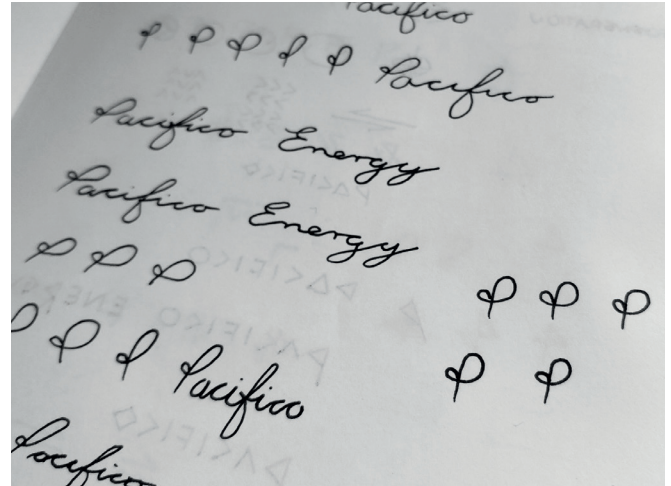 Pacifico
P P P P P Pacifico
Pacifico Energy
Pacifico Energy
P P P
P P P
P P P Pacifico
P P
Pacifico